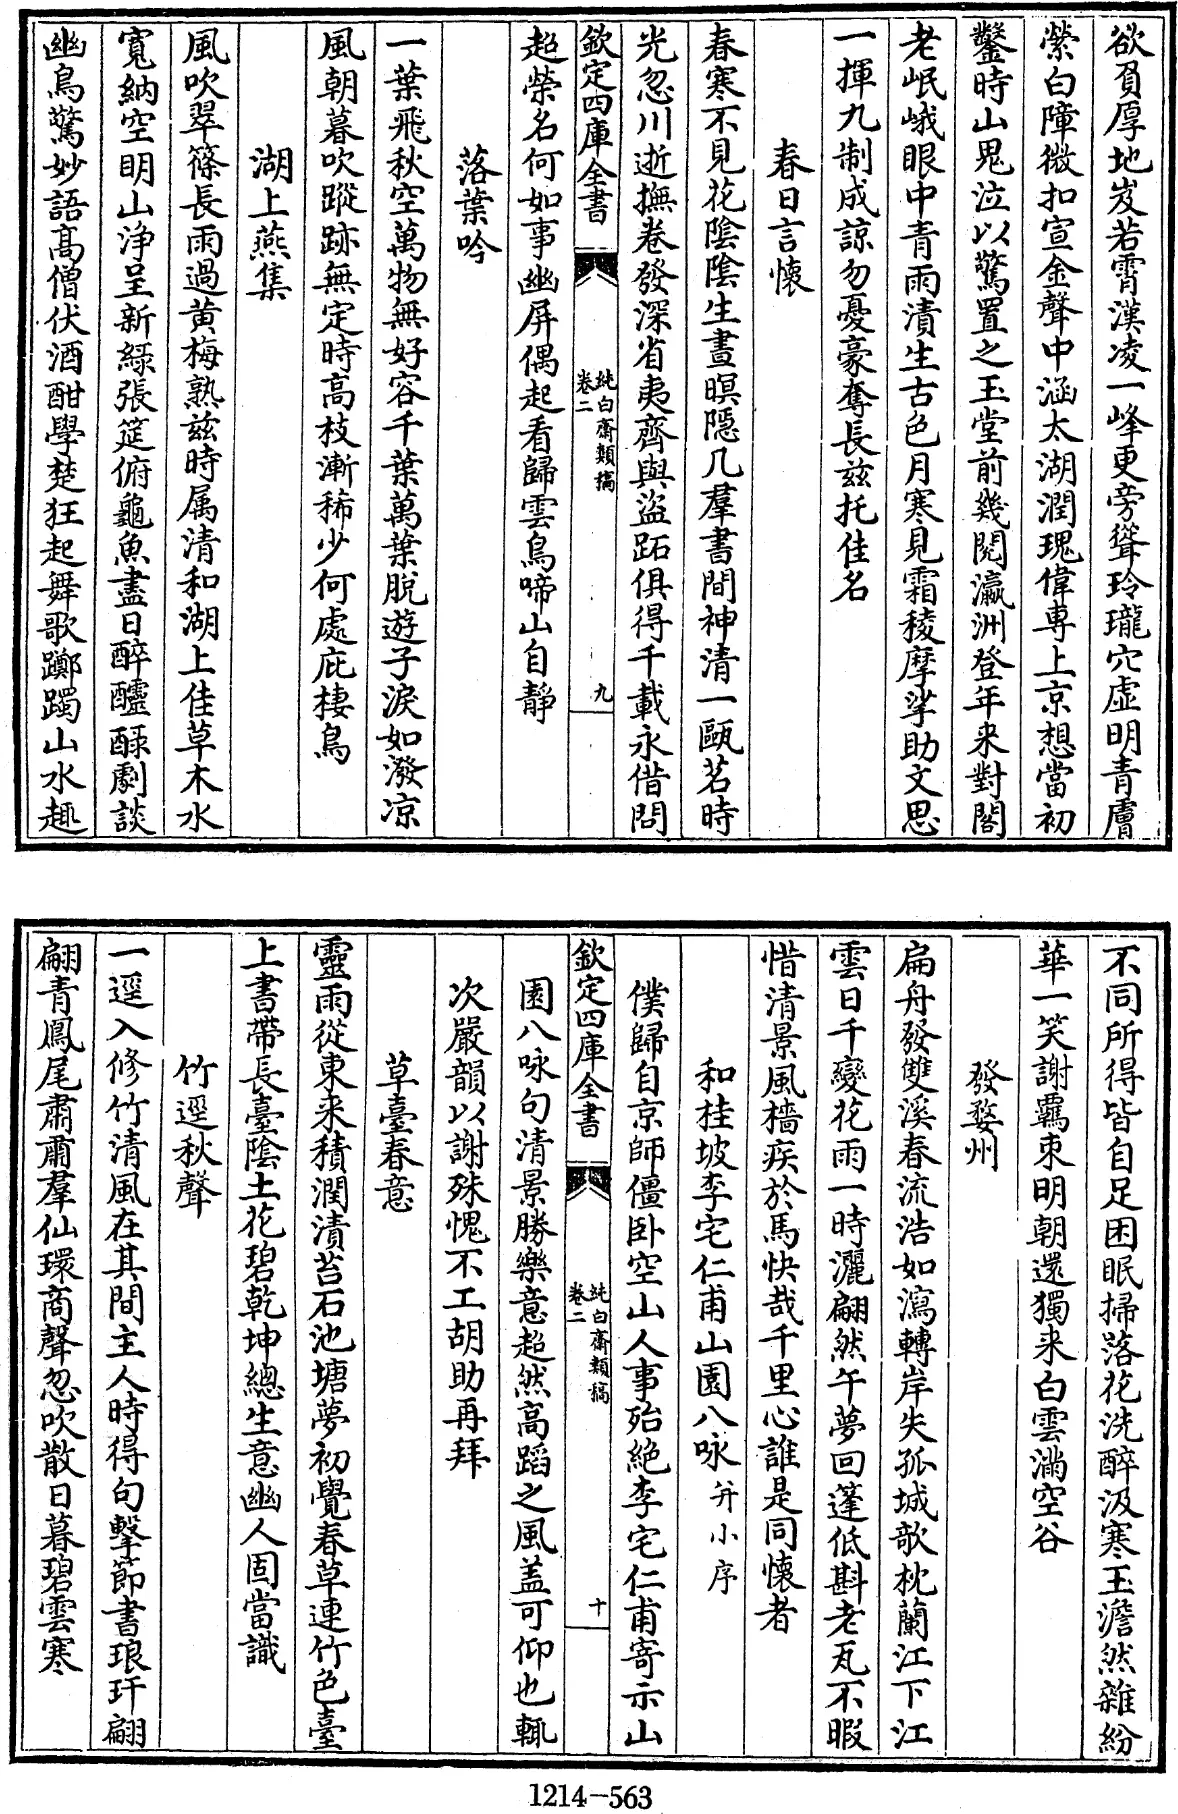 欲負厚地岌若霄漢凌一峰更旁聳玲瓏穴虛明青膚
縈白障微扣宣金聲中涵太湖潤瑰偉專上京想當初
鑿時山鬼泣以驚置之玉堂前幾閱瀛洲登年来對閣
老岷峨眼中青雨漬生古色月寒見霜稜摩挲助文思
一揮九制成諒勿憂豪奪長兹托佳名
春日言懷
春寒不見花陰陰生晝暝隱几羣書間神清一甌茗時
光忽川逝撫卷發深省夷齊與盜跖俱得千載永借問
欽定四庫全書
純白齋類稿
卷二
九
超榮名何如事幽屏偶起看歸雲鳥啼山自靜
落葉吟
一葉飛秋空萬物無好容千葉萬葉脫遊子淚如潑凉
風朝暮吹蹤跡無定時高枝漸稀少何處庇棲鳥
湖上燕集
風吹翠篠長雨過黄梅熟兹時属清和湖上佳草木水
寬納空明山浄呈新緑張筵俯龜魚盡日醉醽醁劇談
幽鳥驚妙語髙僧伏酒酣學楚狂起舞歌躑躅山水趣
不同所得皆自足困眠掃落花洗醉汲寒玉澹然雜紛
華一笑謝羈束明朝還獨来白雲滿空谷
發婺州
扁舟發雙溪春流浩如瀉轉岸失孤城欹枕蘭江下江
雲日千變花雨一時灑翩然午夢回蓬低斟老瓦不暇
惜清景風檣疾於馬快哉千里心誰是同懷者
和桂坡李宅仁甫山園八咏并小序
僕歸自京師僵卧空山人事殆絶李宅仁甫寄示山
欽定四庫全書
純白齋類稿
卷二
十
園八咏句清景勝樂意超然高蹈之風盖可仰也輒
次嚴韻以謝殊愧不工胡助再拜
草臺春意
靈雨從東来積潤漬苔石池塘夢初覺春草連竹色臺
上書帶長臺陰土花碧乾坤總生意幽人固當識
竹逕秋聲
一逕入修竹清風在其間主人時得句擊節書琅玕翩
翩青鳳尾肅肅羣仙環商聲忽吹散日暮碧雲寒
1214-563